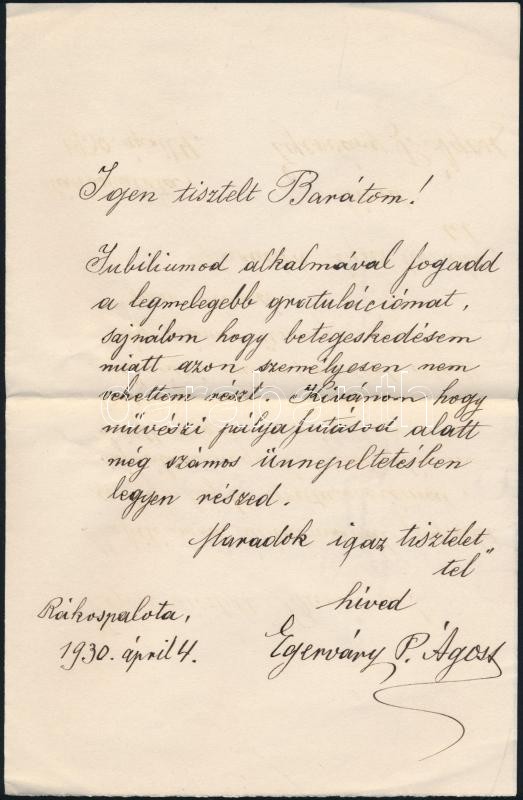 Igen tisztelt Barátom!
Jubiliumod alkalmával fogadd
a legmelegebb gratulációmat,
sajnálom hogy betegeskedésem
miatt azon személyesen nem
vehettem részt. Kivánom hogy
művészi pályafutásod alatt
még számos ünnepeltetésben
legyen részed.
Maradok igaz tisztelet
tel"
híved
Rákospalota,
1930. ápril 4.
Egerváry P. Ágost
darabanth